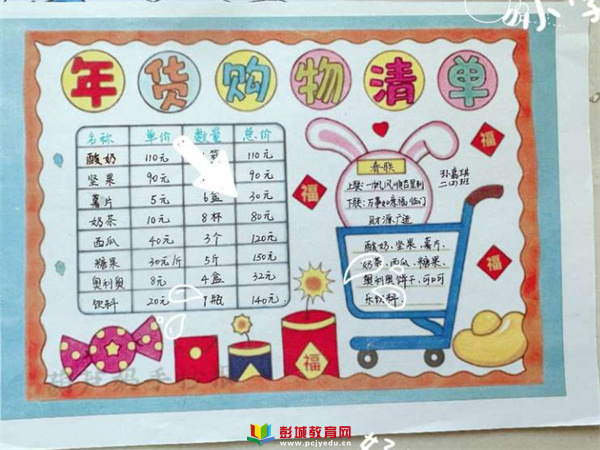 年货购物清单
名称 单价 数量 总价
酸奶 110元 110元
坚果 90元 90元
薯片 5元 6盒 30元
奶茶 10元 8杯 80元
西瓜 40元 3个 120元
糖果 30元/斤 5斤 150元
奥利奥 8元 4盒 32元
饮料 20元 7瓶 140元
春联
上联:一帆风顺吉星到
下联:万事如意福临门
财源广进
二(4)班
福
福
福
酸奶、坚果、薯片、
奶茶、西瓜、糖果、
奥利奥饼干、可口可
乐饮料.
福
彭城教育网
www.pcjyedu.cn